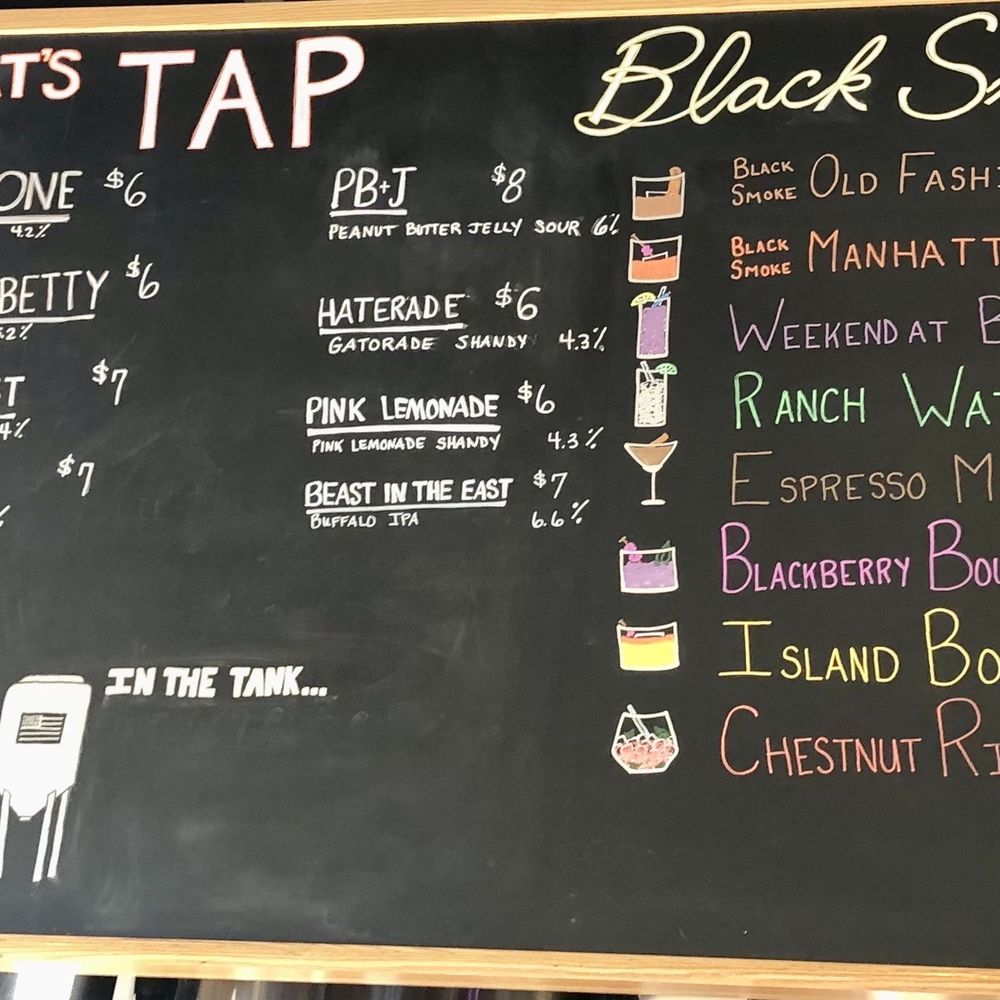 T'S TAP
ONE $6
4.2%
BETTY $6
.2%
T $7
4%
$7
%
PB+J $8
PEANUT BUTTER JELLY SOUR 6%
HATERADE $6
GATORADE SHANDY 4.3%
PINK LEMONADE $6
PINK LEMONADE SHANDY 4.3%
BEAST IN THE EAST $7
BUFFALO IPA 6.6%
IN THE TANK...
Black S
BLACK SMOKE OLD FASHI
BLACK SMOKE MANHATT
WEEKEND AT B
RANCH WAT
ESPRESSO M
BLACKBERRY BOU
ISLAND BO
CHESTNUT RI